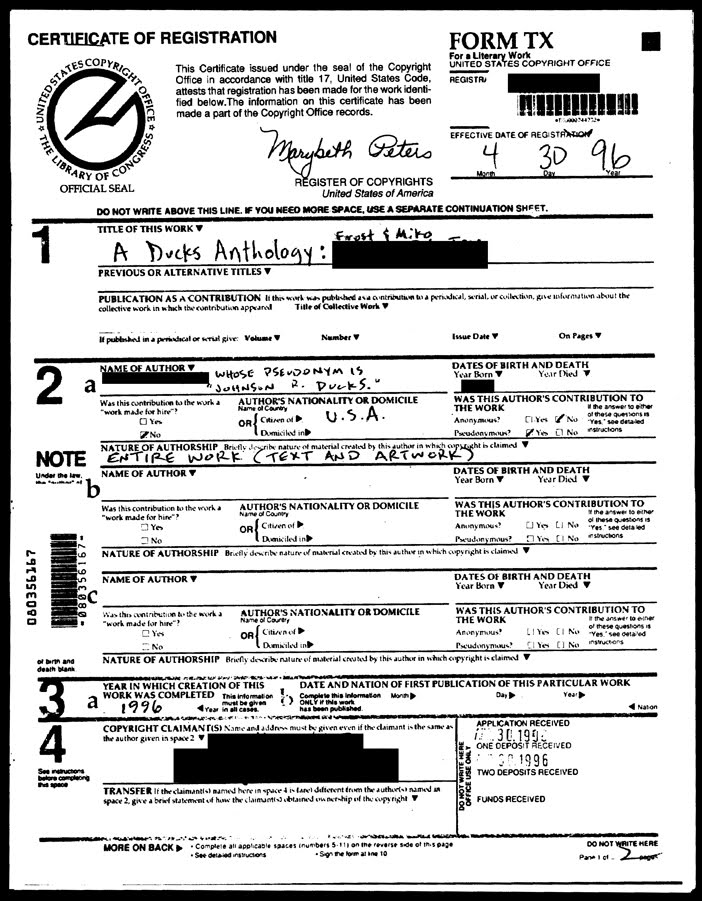 CERTIFICATE OF REGISTRATION
FORM TX
For a Literary Work
UNITED STATES COPYRIGHT OFFICE
UNITED STATES COPYRIGHT OFFICE
THE LIBRARY OF CONGRESS
OFFICIAL SEAL
This Certificate issued under the seal of the Copyright
Office in accordance with title 17, United States Code,
attests that registration has been made for the work identi-
fied below.The information on this certificate has been
made a part of the Copyright Office records.
Marybeth Peters
REGISTER OF COPYRIGHTS
United States of America
REGISTR
EFFECTIVE DATE OF REGISTRATION
4 30 96
Month Day Year
DO NOT WRITE ABOVE THIS LINE. IF YOU NEED MORE SPACE, USE A SEPARATE CONTINUATION SHEET.
1
TITLE OF THIS WORK ▼
A Ducks Anthology: Frost & Miko
PREVIOUS OR ALTERNATIVE TITLES ▼
PUBLICATION AS A CONTRIBUTION If this work was published as a contribution to a periodical, serial, or collection, give information about the
collective work in which the contribution appeared Title of Collective Work ▼
If published in a periodical or serial give: Volume ▼ Number ▼ Issue Date ▼ On Pages ▼
2
a
NAME OF AUTHOR ▼
WHOSE PSEUDONYM IS
"JOHNSON R. DUCKS."
DATES OF BIRTH AND DEATH
Year Born ▼ Year Died ▼
Was this contribution to the work a
"work made for hire"?
Yes
No
AUTHOR'S NATIONALITY OR DOMICILE
Name of Country
OR { Citizen of ▶ U.S.A.
Domiciled in ▶
WAS THIS AUTHOR'S CONTRIBUTION TO
THE WORK
Anonymous? Yes No
Pseudonymous? Yes No
If the answer to either
of these questions is
"Yes," see detailed
instructions
NATURE OF AUTHORSHIP Briefly describe nature of material created by this author in which copyright is claimed ▼
ENTIRE WORK (TEXT AND ARTWORK)
NOTE
Under the law,
b
NAME OF AUTHOR ▼
DATES OF BIRTH AND DEATH
Year Born ▼ Year Died ▼
Was this contribution to the work a
"work made for hire"?
Yes
No
AUTHOR'S NATIONALITY OR DOMICILE
Name of Country
OR { Citizen of ▶
Domiciled in ▶
WAS THIS AUTHOR'S CONTRIBUTION TO
THE WORK
Anonymous? Yes No
Pseudonymous? Yes No
If the answer to either
of these questions is
"Yes," see detailed
instructions
NATURE OF AUTHORSHIP Briefly describe nature of material created by this author in which copyright is claimed ▼
080356167
*080356167*
c
NAME OF AUTHOR ▼
DATES OF BIRTH AND DEATH
Year Born ▼ Year Died ▼
Was this contribution to the work a
"work made for hire"?
Yes
No
AUTHOR'S NATIONALITY OR DOMICILE
Name of Country
OR { Citizen of ▶
Domiciled in ▶
WAS THIS AUTHOR'S CONTRIBUTION TO
THE WORK
Anonymous? Yes No
Pseudonymous? Yes No
If the answer to either
of these questions is
"Yes," see detailed
instructions
of birth and
death blank
NATURE OF AUTHORSHIP Briefly describe nature of material created by this author in which copyright is claimed ▼
3
a
YEAR IN WHICH CREATION OF THIS
WORK WAS COMPLETED This information
must be given
in all cases.
1996 ◀ Year
DATE AND NATION OF FIRST PUBLICATION OF THIS PARTICULAR WORK
Complete this information
ONLY if this work
has been published.
Month ▶ Day ▶ Year ▶
◀ Nation
4
See instructions
before completing
this space
COPYRIGHT CLAIMANT(S) Name and address must be given even if the claimant is the same as
the author given in space 2 ▼
TRANSFER If the claimant(s) named here in space 4 is (are) different from the author(s) named in
space 2, give a brief statement of how the claimant(s) obtained ownership of the copyright ▼
DO NOT WRITE HERE
OFFICE USE ONLY
APPLICATION RECEIVED
30.1996
ONE DEPOSIT RECEIVED
30.1996
TWO DEPOSITS RECEIVED
FUNDS RECEIVED
MORE ON BACK ▶
• Complete all applicable spaces (numbers 5-11) on the reverse side of this page
• See detailed instructions • Sign the form at line 10
DO NOT WRITE HERE
Page 1 of 2 pages